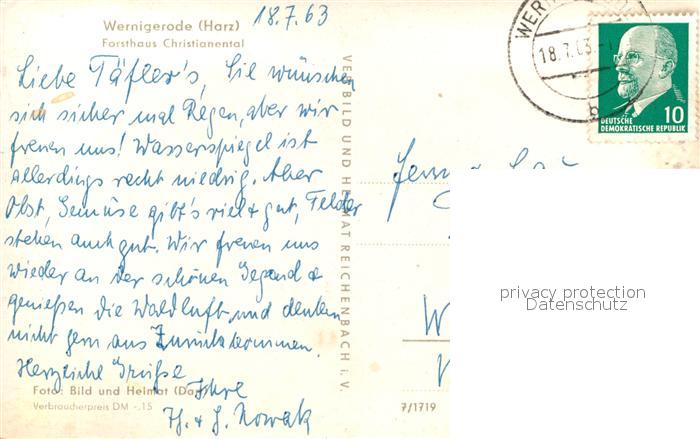 Wernigerode (Harz)
Forsthaus Christianental
18.7.63
Liebe Täfler's, Sie wünschen
sich sicher mal Regen, aber wir
freuen uns! Wasserspiegel ist
allerdings recht niedrig. Aber
Obst, Gemüse gibt's viel + gut, Felder
stehen auch gut. Wir freuen uns
wieder an der schönen Gegend +
genießen die Waldluft und denken
nicht gern ans Zurückkommen.
Herzliche Grüße
Ihre
Th. + J. Nowak
Foto: Bild und Heimat
Verbraucherpreis DM -.15
VERLAG BILD UND HEIMAT REICHENBACH i. V.
7/1719
18.7.63
b
10
DEUTSCHE
DEMOKRATISCHE REPUBLIK
privacy protection
Datenschutz